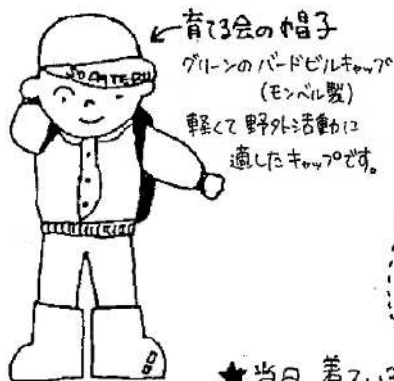 育てる会の帽子
グリーンのバードビルキャップ
(モンベル製)
軽くて野外活動に
適したキャップです。
★当日、着てい